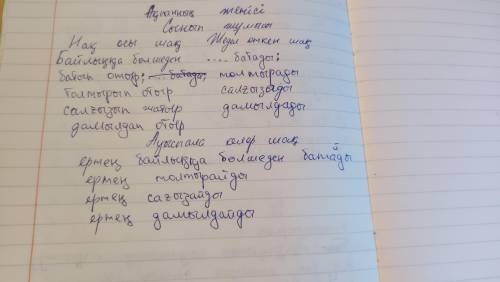 Ақшаның жеңісі
Сынып жұмысы
Нақ осы шақ Жедел өткен шақ
Байлыққа бөлшеден .... батады;
батып отыр; толтырады
Толтырып отыр салғызыды
салғызып жатыр дамылдады
дамылдап отыр
Ауыспалы келер шақ
ертең байлыққа бөлшеден батайды
ертең толтырайды
ертең сағызайды
ертең дамылдайды